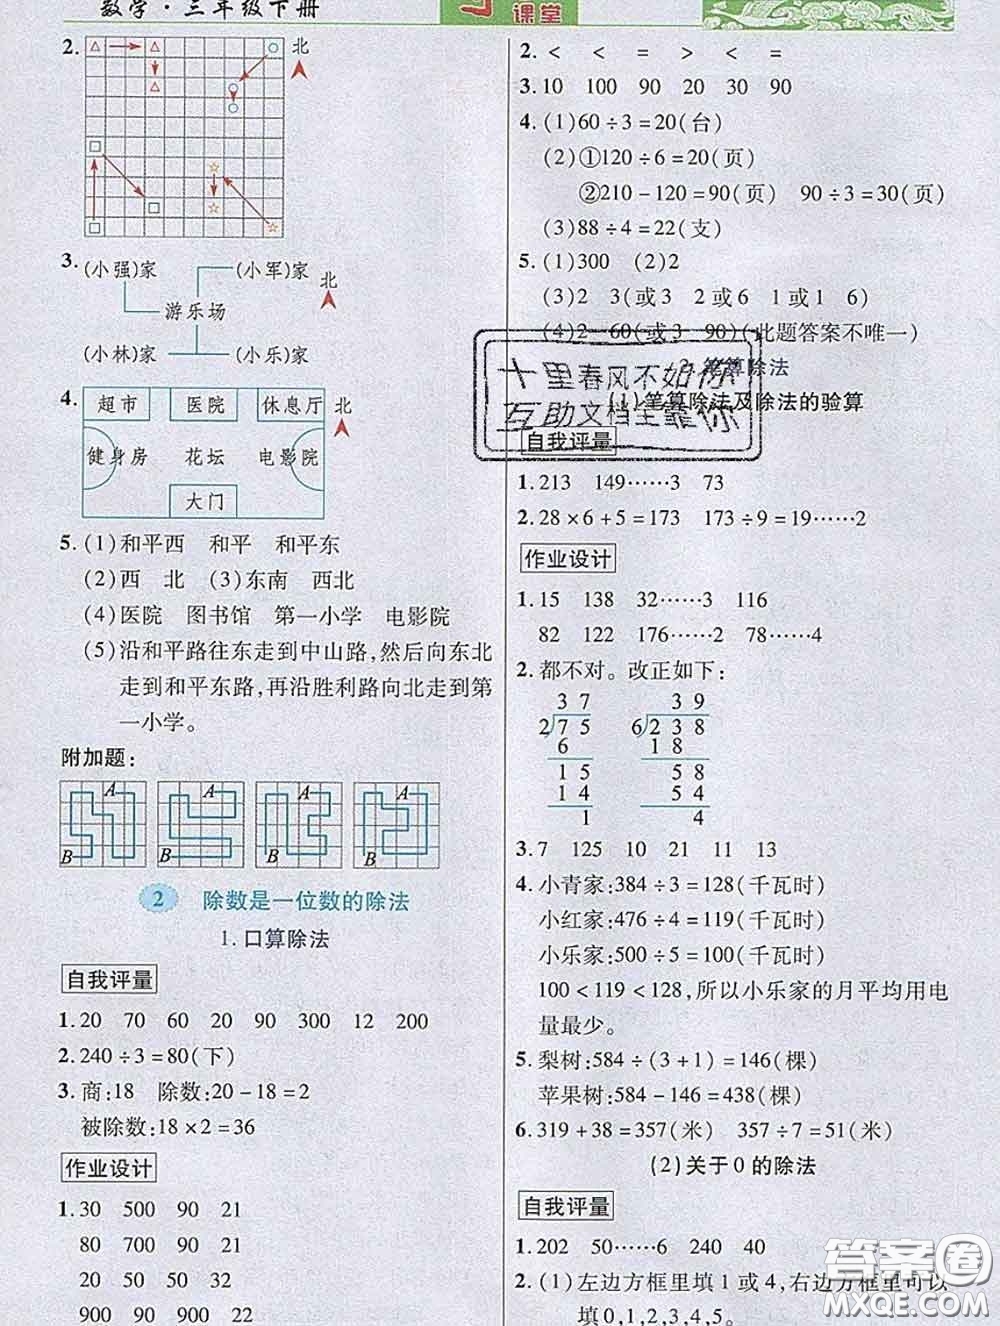 数学·三年级下册
课堂
2.
北
3.
(小强)家 (小军)家
北
游乐场
(小林)家 (小乐)家
4.
超市 医院 休息厅 北
健身房 花坛 电影院
大门
5. (1)和平西 和平 和平东
(2)西 北 (3)东南 西北
(4)医院 图书馆 第一小学 电影院
(5)沿和平路往东走到中山路,然后向东北
走到和平东路,再沿胜利路向北走到第
一小学。
附加题:
A A A A
B B B B
2 除数是一位数的除法
1. 口算除法
自我评量
1. 20 70 60 20 90 300 12 200
2. 240÷3=80(下)
3. 商:18 除数:20-18=2
被除数:18×2=36
作业设计
1. 30 500 90 21
80 700 90 21
20 50 50 32
900 90 900 22
2. < < = > < =
3. 10 100 90 20 30 90
4. (1)60÷3=20(台)
(2)①120÷6=20(页)
②210-120=90(页) 90÷3=30(页)
(3)88÷4=22(支)
5. (1)300 (2)2
(3)2 3(或3 2或6 1或1 6)
(4)2 60(或3 90)(此题答案不唯一)
2. 笔算除法
(1)笔算除法及除法的验算
十里春风不如你
互助文档全靠你
自我评量
1. 213 149……3 73
2. 28×6+5=173 173÷9=19……2
作业设计
1. 15 138 32……3 116
82 122 176……2 78……4
2. 都不对。改正如下:
3 7 3 9
2 7 5 6 2 3 8
6 1 8
1 5 5 8
1 4 5 4
1 4
3. 7 125 10 21 11 13
4. 小青家:384÷3=128(千瓦时)
小红家:476÷4=119(千瓦时)
小乐家:500÷5=100(千瓦时)
100<119<128,所以小乐家的月平均用电
量最少。
5. 梨树:584÷(3+1)=146(棵)
苹果树:584-146=438(棵)
6. 319+38=357(米) 357÷7=51(米)
(2)关于0的除法
自我评量
1. 202 50……6 240 40
2. (1)左边方框里填1或4,右边方框里可以
填0,1,2,3,4,5。
答案圈
MXQE.COM